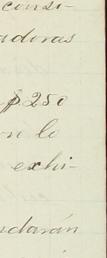 consi-
aderas
$250
on lo
exhi-
ndarán